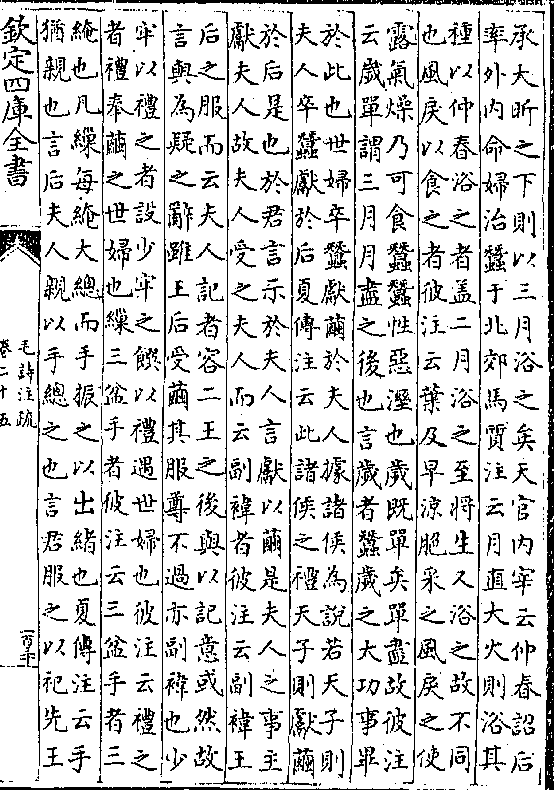 承大昕之下則以三月浴之矣天官内宰云仲春詔后
率外内命婦治蠶于北郊馬質注云月直大火則浴其
種以仲春浴之者蓋二月浴之至將生又浴之故不同
也風戾以食之者彼注云葉及早涼脆采之風戾之使
露氣燥乃可食蠶蠶性惡溼也歲既單矣單盡故彼注
云歲單謂三月月盡之後也言歲者蠶歲之大功事畢
於此也世婦卒蠶獻繭於夫人據諸侯為說若天子則
夫人卒蠶獻於后夏傳注云此諸侯之禮天子則獻繭
於后是也於君言示於夫人言獻以繭是夫人之事主
獻夫人故夫人受之夫人而云副褘者彼注云副褘王
后之服而云夫人記者容二王之後與以記意或然故
言與為疑之辭雖王后受繭其服尊不過亦副褘也少
牢以禮之者設少牢之饌以禮遇世婦也彼注云禮之
者禮奉繭之世婦也繅三盆手者彼注云三盆手者三
淹也凡繅每淹大總而手振之以出緒也夏傳注云手
猶親也言后夫人親以手總之也言君服之以祀先王
欽定四庫全書
毛詩注疏
卷二十五